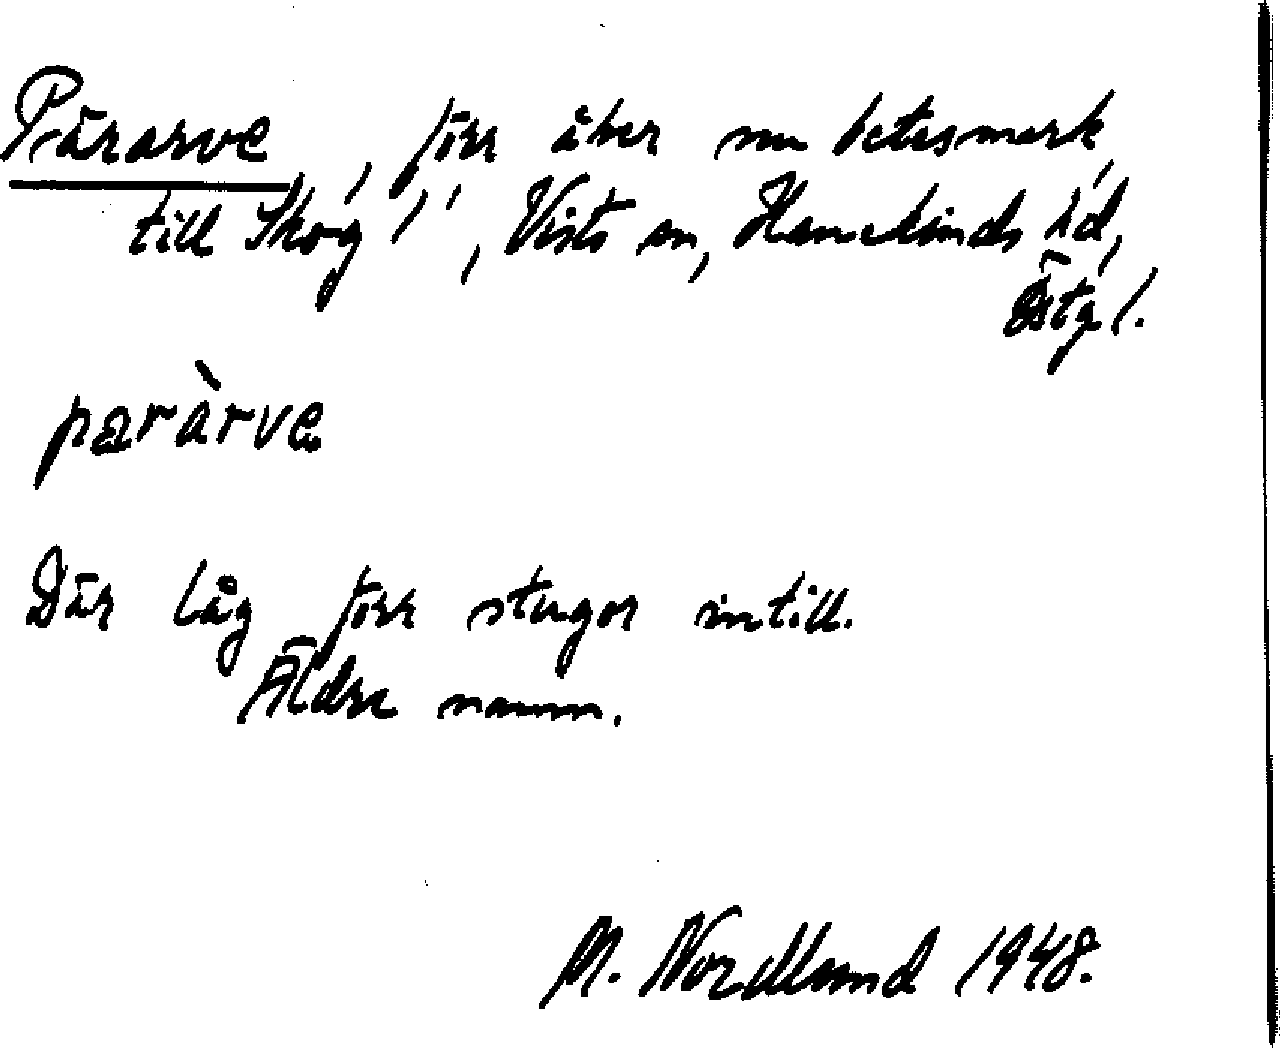 Pärarve, förr åker nu betesmark
till Skog 1¹, Vists sn, Hanekinds hd,
Östg l.
pæràrve
Där låg förr stugor intill.
Äldre namn.
M. Nordlund 1948.